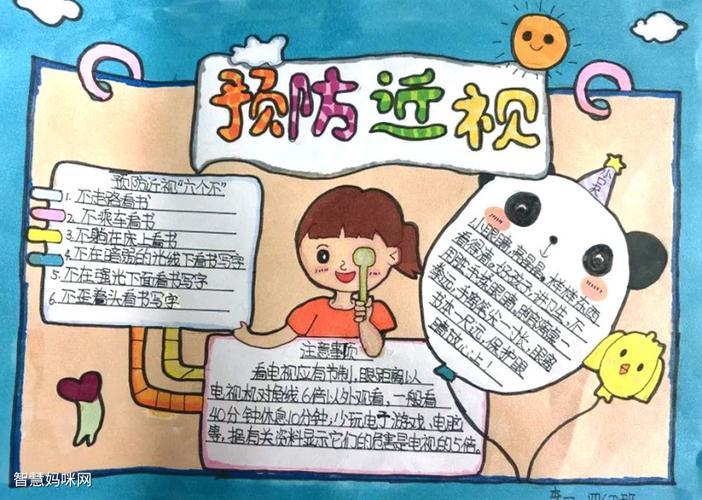 预防近视
预防近视“六个不”
1. 不走路看书
2. 不乘车看书
3. 不躺在床上看书
4. 不在暗弱的光线下看书写字
5. 不在强光下面看书写字
6. 不歪着头看书写字
小眼睛,
看得清,好孩子,讲卫生,不
用脏手揉眼睛,
书本一尺远,保护眼
睛放心上!
注意事项
看电视应有节制,眼距离以
电视机对角线6倍以外观看,一般看
40分钟休息10分钟,少玩电子游戏、电脑
等,据有关资料显示它们的危害是电视的5倍。
智慧妈咪网